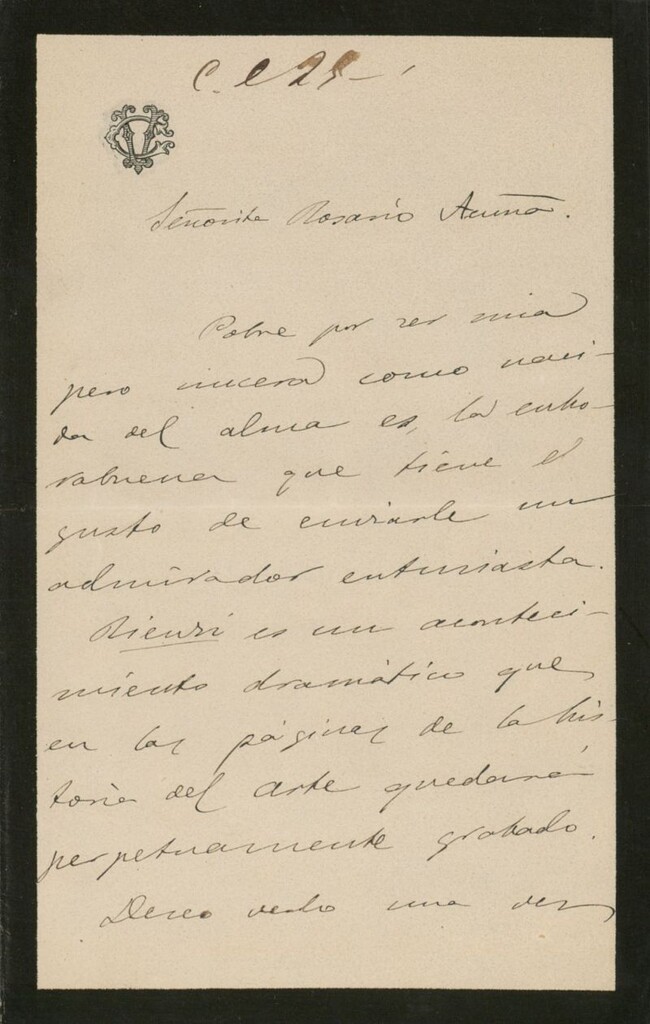 C. e 25-
Señorita Rosario Acuña.
Pobre por ser mia
pero sincera como naci-
da del alma es, la enho-
rabuena que tiene el
gusto de enviarle un
admirador entusiasta.
Rienzi es un aconteci-
miento dramático que
en las páginas de la his-
toria del arte quedará
perpetuamente grabado.
Deseo verlo una vez